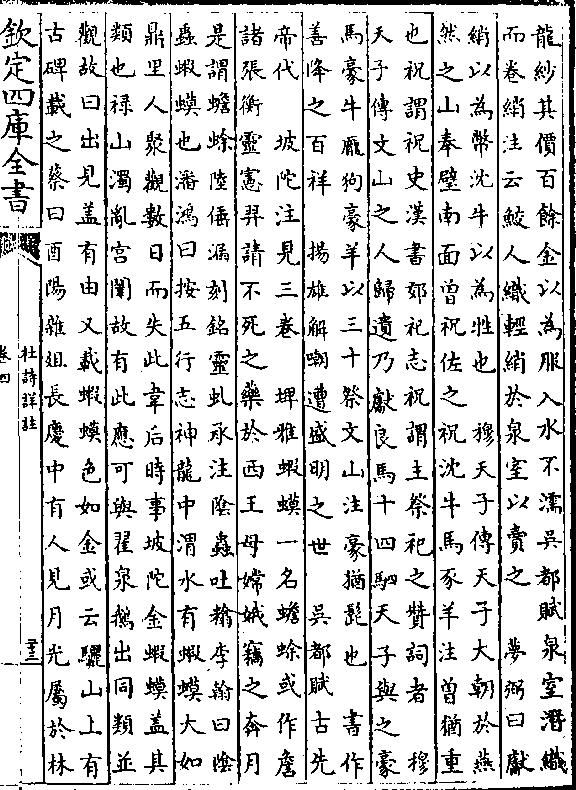 龍紗其價百餘金以為服入水不濡吳都賦泉室潛織
而卷綃注云鮫人織輕綃於泉室以賣之　夢弼曰獻
綃以為幣沈牛以為牲也　穆天子傳天子大朝於燕
然之山奉璧南面曾祝佐之祝沈牛馬豕羊注曾猶重
也祝謂祝史漢書郊祀志祝謂主祭祀之贊詞者　穆
天子傳文山之人歸遺乃獻良馬十四駟天子與之豪
馬豪牛龎狗豪羊以三十祭文山注豪猶髭也　書作
善降之百祥　揚雄解嘲遭盛明之世　吳都賦古先
帝代　坡陀注見三卷　埤雅蝦蟆一名蟾蜍或作詹
諸張衡靈憲羿請不死之藥於西王母嫦娥竊之奔月
是謂蟾蜍陸倕漏刻銘靈虬承注陰蟲吐精李翰曰陰
蟲蝦蟆也潘鴻曰按五行志神龍中渭水有蝦蟆大如
鼎里人聚觀數日而失此韋后時事坡陀金蝦蟆盖其
類也祿山濁亂宮闈故有此應可與翟泉鵝出同類並
觀故曰出見盖有由又載蝦蟆色如金或云驪山上有
古碑載之蔡曰酉陽雜俎長慶中有人見月光屬於林
欽定四庫全書
杜詩詳註
卷四
三三